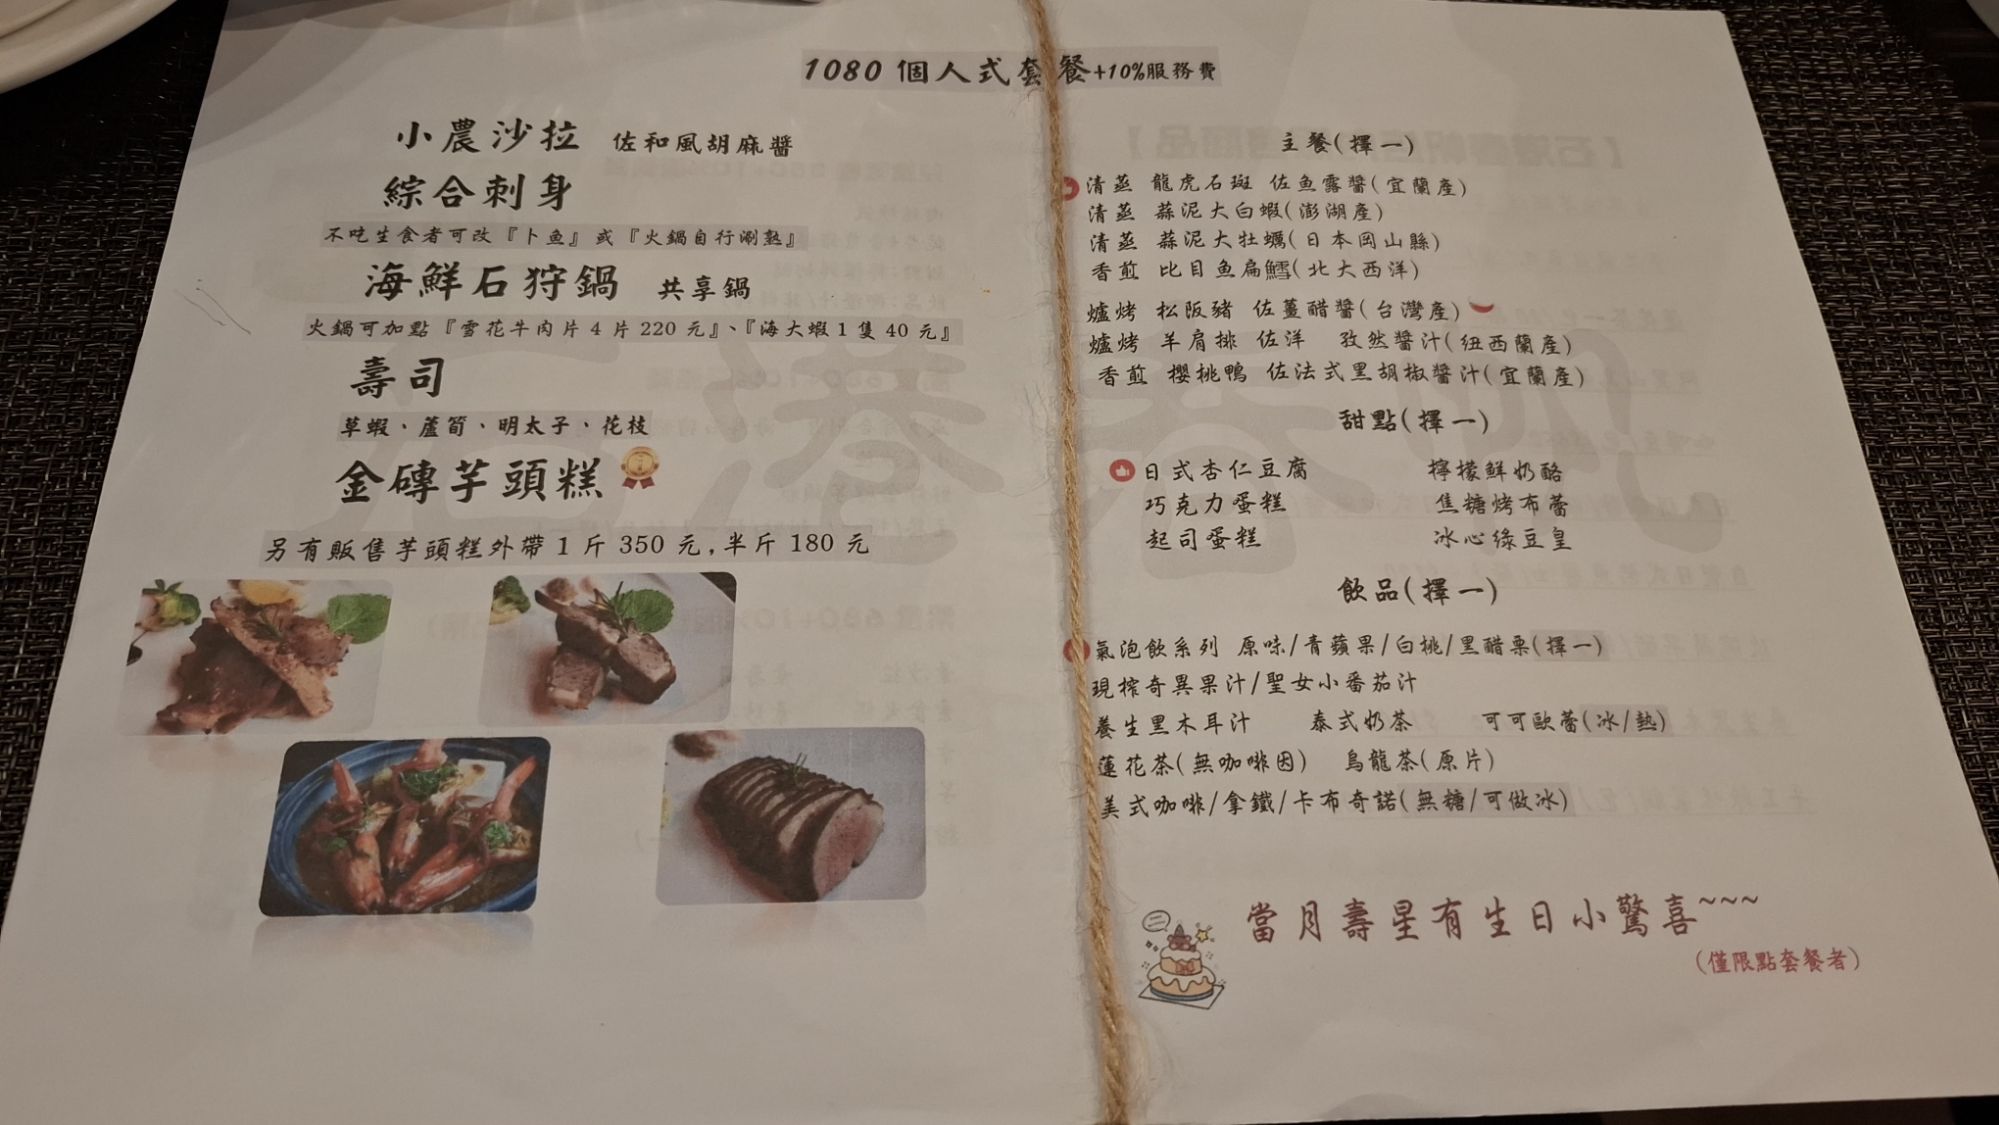 1080 個人式套餐+10%服務費
小農沙拉 佐和風胡麻醬
綜合刺身
不吃生食者可改『卜魚』或『火鍋自行涮熟』
海鮮石狩鍋 共享鍋
火鍋可加點『雪花牛肉片4片220元』、『海大蝦1隻40元』
壽司
草蝦、蘆筍、明太子、花枝
金磚芋頭糕
另有販售芋頭糕外帶1斤350元,半斤180元
主餐(擇一)
清蒸 龍虎石斑 佐魚露醬(宜蘭產)
清蒸 蒜泥大白蝦(澎湖產)
清蒸 蒜泥大牡蠣(日本岡山縣)
香煎 比目魚扁鱈(北大西洋)
爐烤 松阪豬 佐薑醋醬(台灣產)
爐烤 羊肩排 佐洋 孜然醬汁(紐西蘭產)
香煎 櫻桃鴨 佐法式黑胡椒醬汁(宜蘭產)
甜點(擇一)
日式杏仁豆腐 檸檬鮮奶酪
巧克力蛋糕 焦糖烤布蕾
起司蛋糕 冰心綠豆皇
飲品(擇一)
氣泡飲系列 原味/青蘋果/白桃/黑醋栗(擇一)
現榨奇異果汁/聖女小番茄汁
養生黑木耳汁 泰式奶茶 可可歐蕾(冰/熱)
蓮花茶(無咖啡因) 烏龍茶(原片)
美式咖啡/拿鐵/卡布奇諾(無糖/可做冰)
當月壽星有生日小驚喜~~~
(僅限點套餐者)